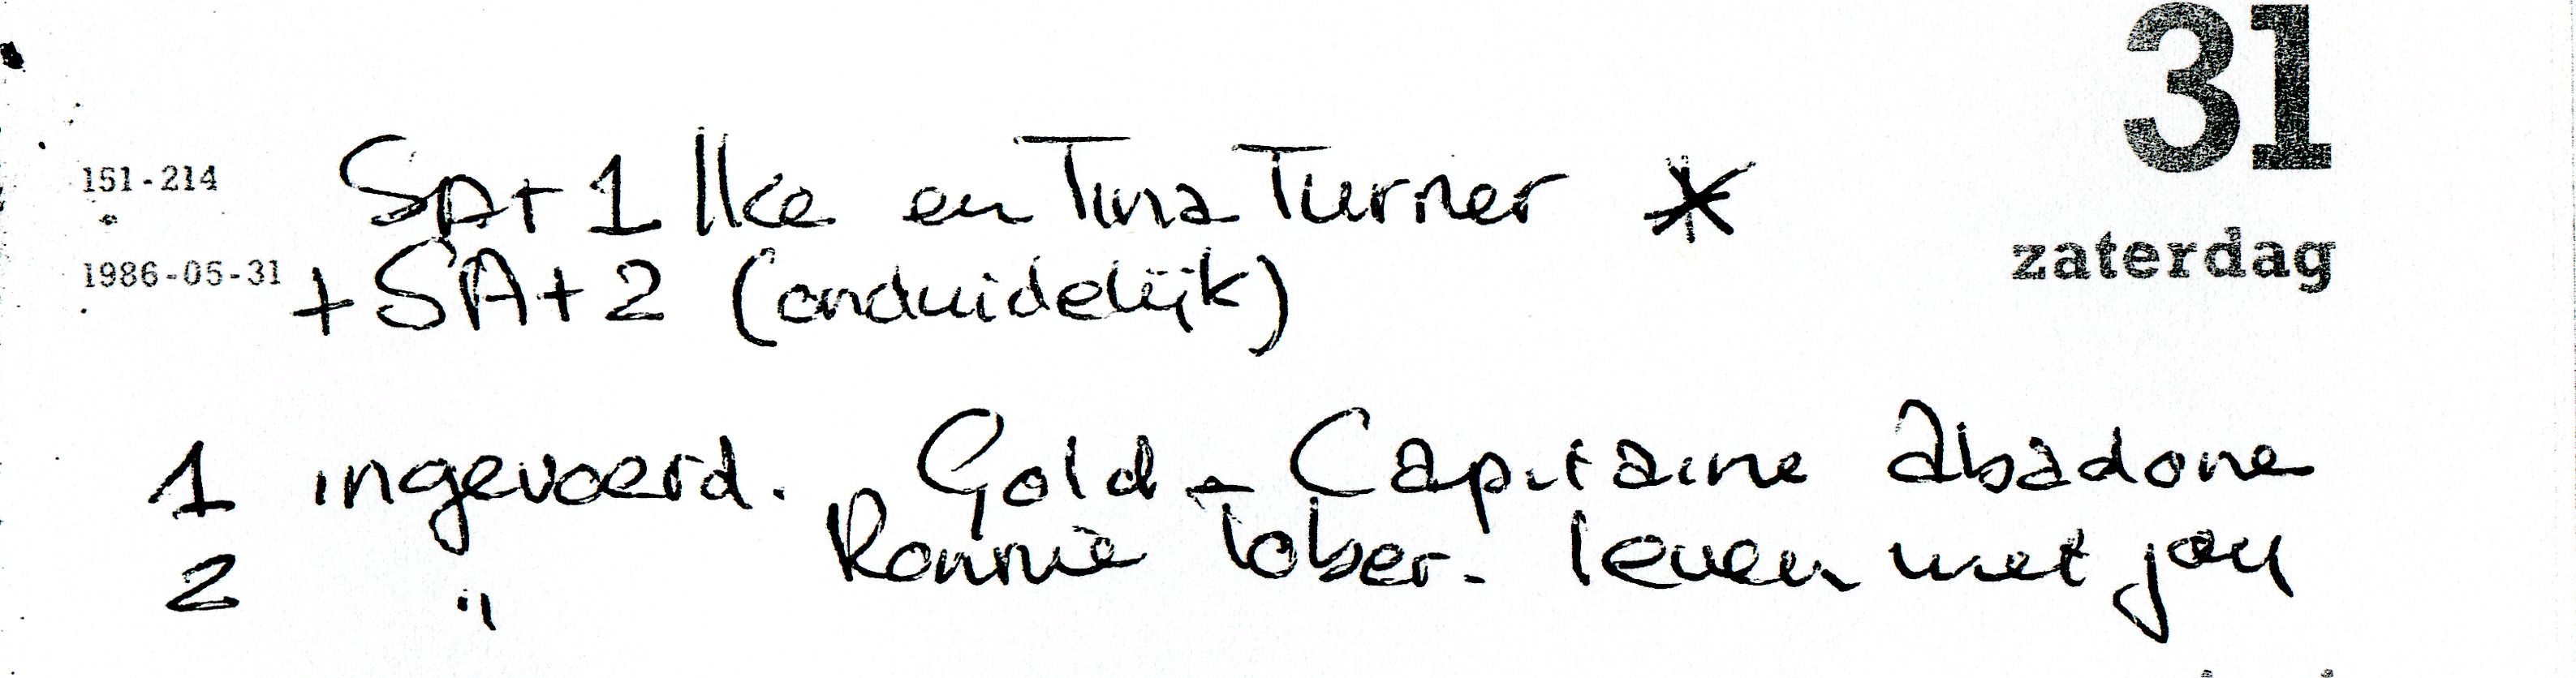 31
151-214 SA+1 Ike en Tina Turner *
zaterdag
1986-05-31 +SA+2 (onduidelijk)
1 ingevoerd. Gold - Capitaine abadone
2 " Ronnie Tober - leven met jou